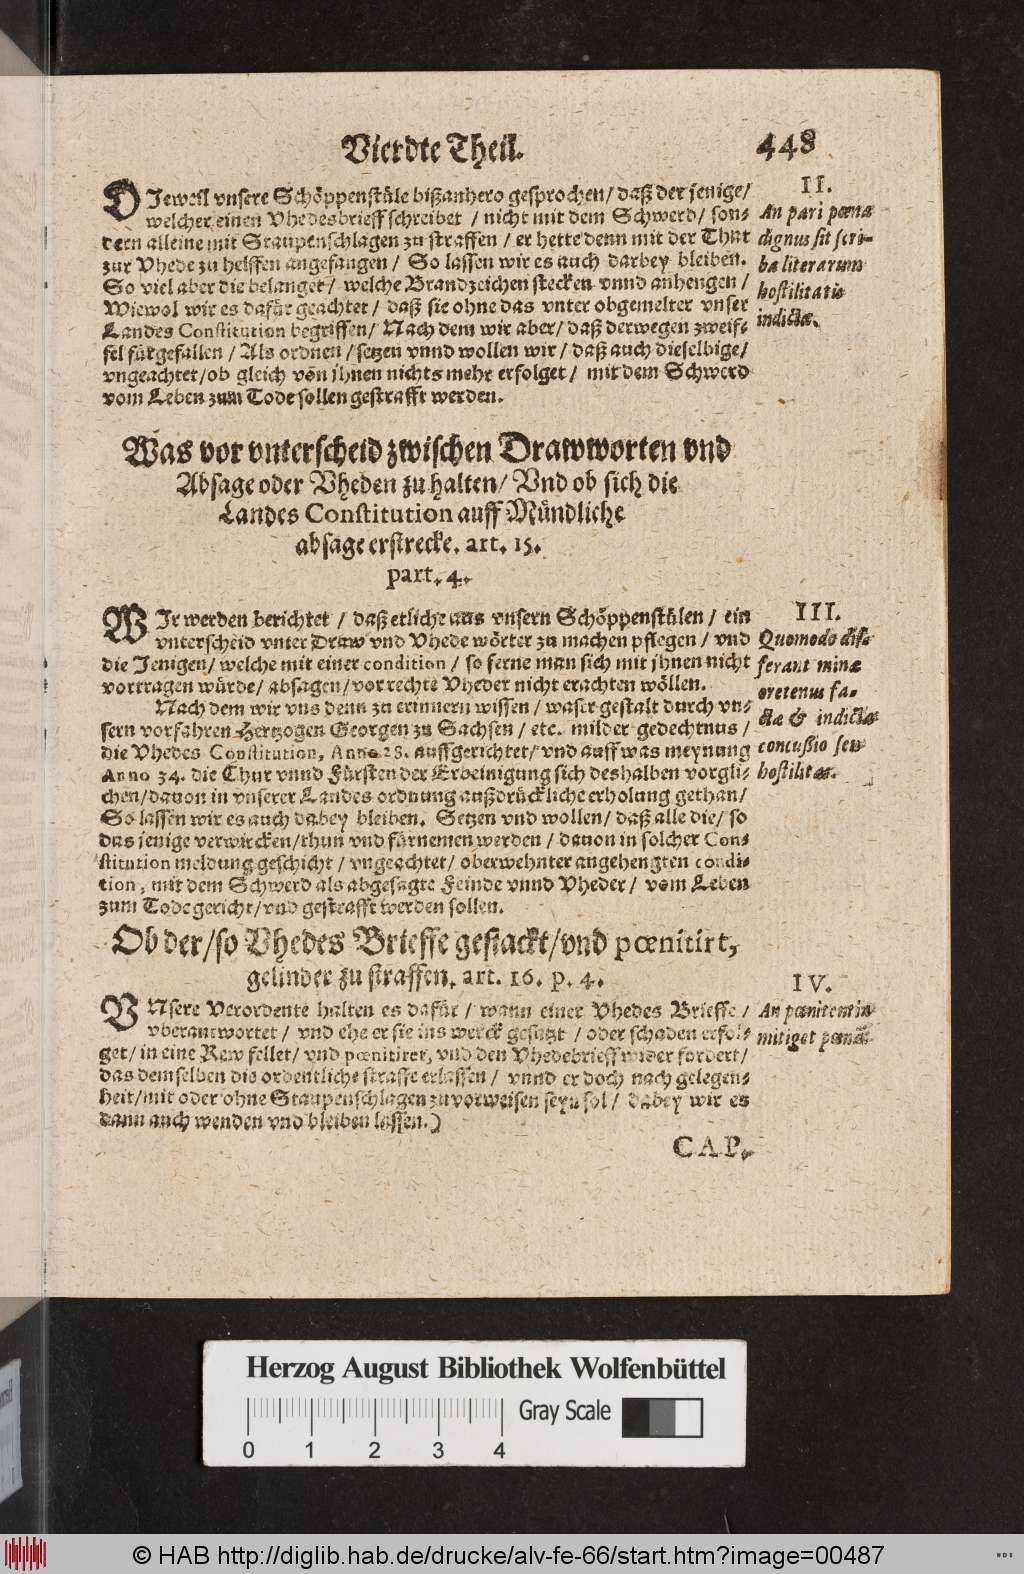 Vierdte Theil. 448
DJeweil vnsere Schöppenstüle bißanhero gesprochen/ daß der jenige/
welcher einen Vhedesbrieff schreibet / nicht mit dem Schwerd/ son-
dern alleine mit Staupenschlagen zu straffen / er hette denn mit der That
zur Vhede zu helffen angefangen / So lassen wir es auch darbey bleiben.
So viel aber die belanget/ welche Brandzeichen stecken vnnd anhengen /
Wiewol wir es dafür geachtet / daß sie ohne das vnter obgemelter vnser
Landes Constitution begriffen/ Nach dem wir aber/ daß derwegen zweif-
fel fürgefallen / Als ordnen / setzen vnnd wollen wir / daß auch dieselbige/
vngeachtet/ ob gleich von jhnen nichts mehr erfolget / mit dem Schwerd
vom Leben zum Tode sollen gestrafft werden.
II.
An pari pœna
dignus sit scri-
ba literarum
hostilitatis
indictæ.
Was vor vnterscheid zwischen Drawworten vnd
Absage oder Vheden zu halten/ Vnd ob sich die
Landes Constitution auff Mündliche
absage erstrecke. art. 15.
part. 4.
WIr werden berichtet / daß etliche aus vnsern Schöppenstülen / ein
vnterscheid vnter Draw vnd Vhede wörter zu machen pflegen / vnd
die Jenigen/ welche mit einer condition / so ferne man sich mit jhnen nicht
vortragen würde/ absagen/ vor rechte Vheder nicht erachten wöllen.
Nach dem wir vns denn zu erinnern wissen / waser gestalt durch vn-
sern vorfahren Hertzogen Georgen zu Sachsen / etc. milder gedechtnus /
die Vhedes Constitution, Anno 28. auffgerichtet/ vnd auff was meynung
Anno 34. die Chur vnnd Fürsten der Erbeinigung sich deshalben vorgli-
chen/ dauon in vnserer Landes ordnung außdrückliche erholung gethan/
So lassen wir es auch dabey bleiben. Setzen vnd wollen/ daß alle die/ so
das jenige verwircken/ thun vnd fürnemen werden / dauon in solcher Con-
stitution meldung geschicht / vngeachtet/ oberwehnter angehengten condi-
tion, mit dem Schwerd als abgesagte Feinde vnnd Vheder/ vom Leben
zum Tode gericht/ vnd gestrafft werden sollen.
III.
Quomodo dif-
ferant minæ
oretenus fa-
ctæ & indictæ
concussio seu
hostilitas.
Ob der/ so Vhedes Brieffe gestackt/ vnd pœnitirt,
gelinder zu straffen. art. 16. p. 4.
VNsere Verordente halten es dafür / wann einer Vhedes Brieffe /
vberantwortet / vnd ehe er sie ins werck gesetzt / oder schaden erfol-
get/ in eine Rew fellet/ vnd pœnitiret, vnd den Vhedebrieff wider fordert/
das demselben die ordentliche straffe erlassen / vnnd er doch nach gelegen-
heit/ mit oder ohne Staupenschlagen zuvorweisen seyn sol / dabey wir es
dann auch wenden vnd bleiben lassen.)
IV.
An pœnitentia
mitiget pœnã.
CAP.
Herzog August Bibliothek Wolfenbüttel
Gray Scale
0 1 2 3 4
© HAB http://diglib.hab.de/drucke/alv-fe-66/start.htm?image=00487